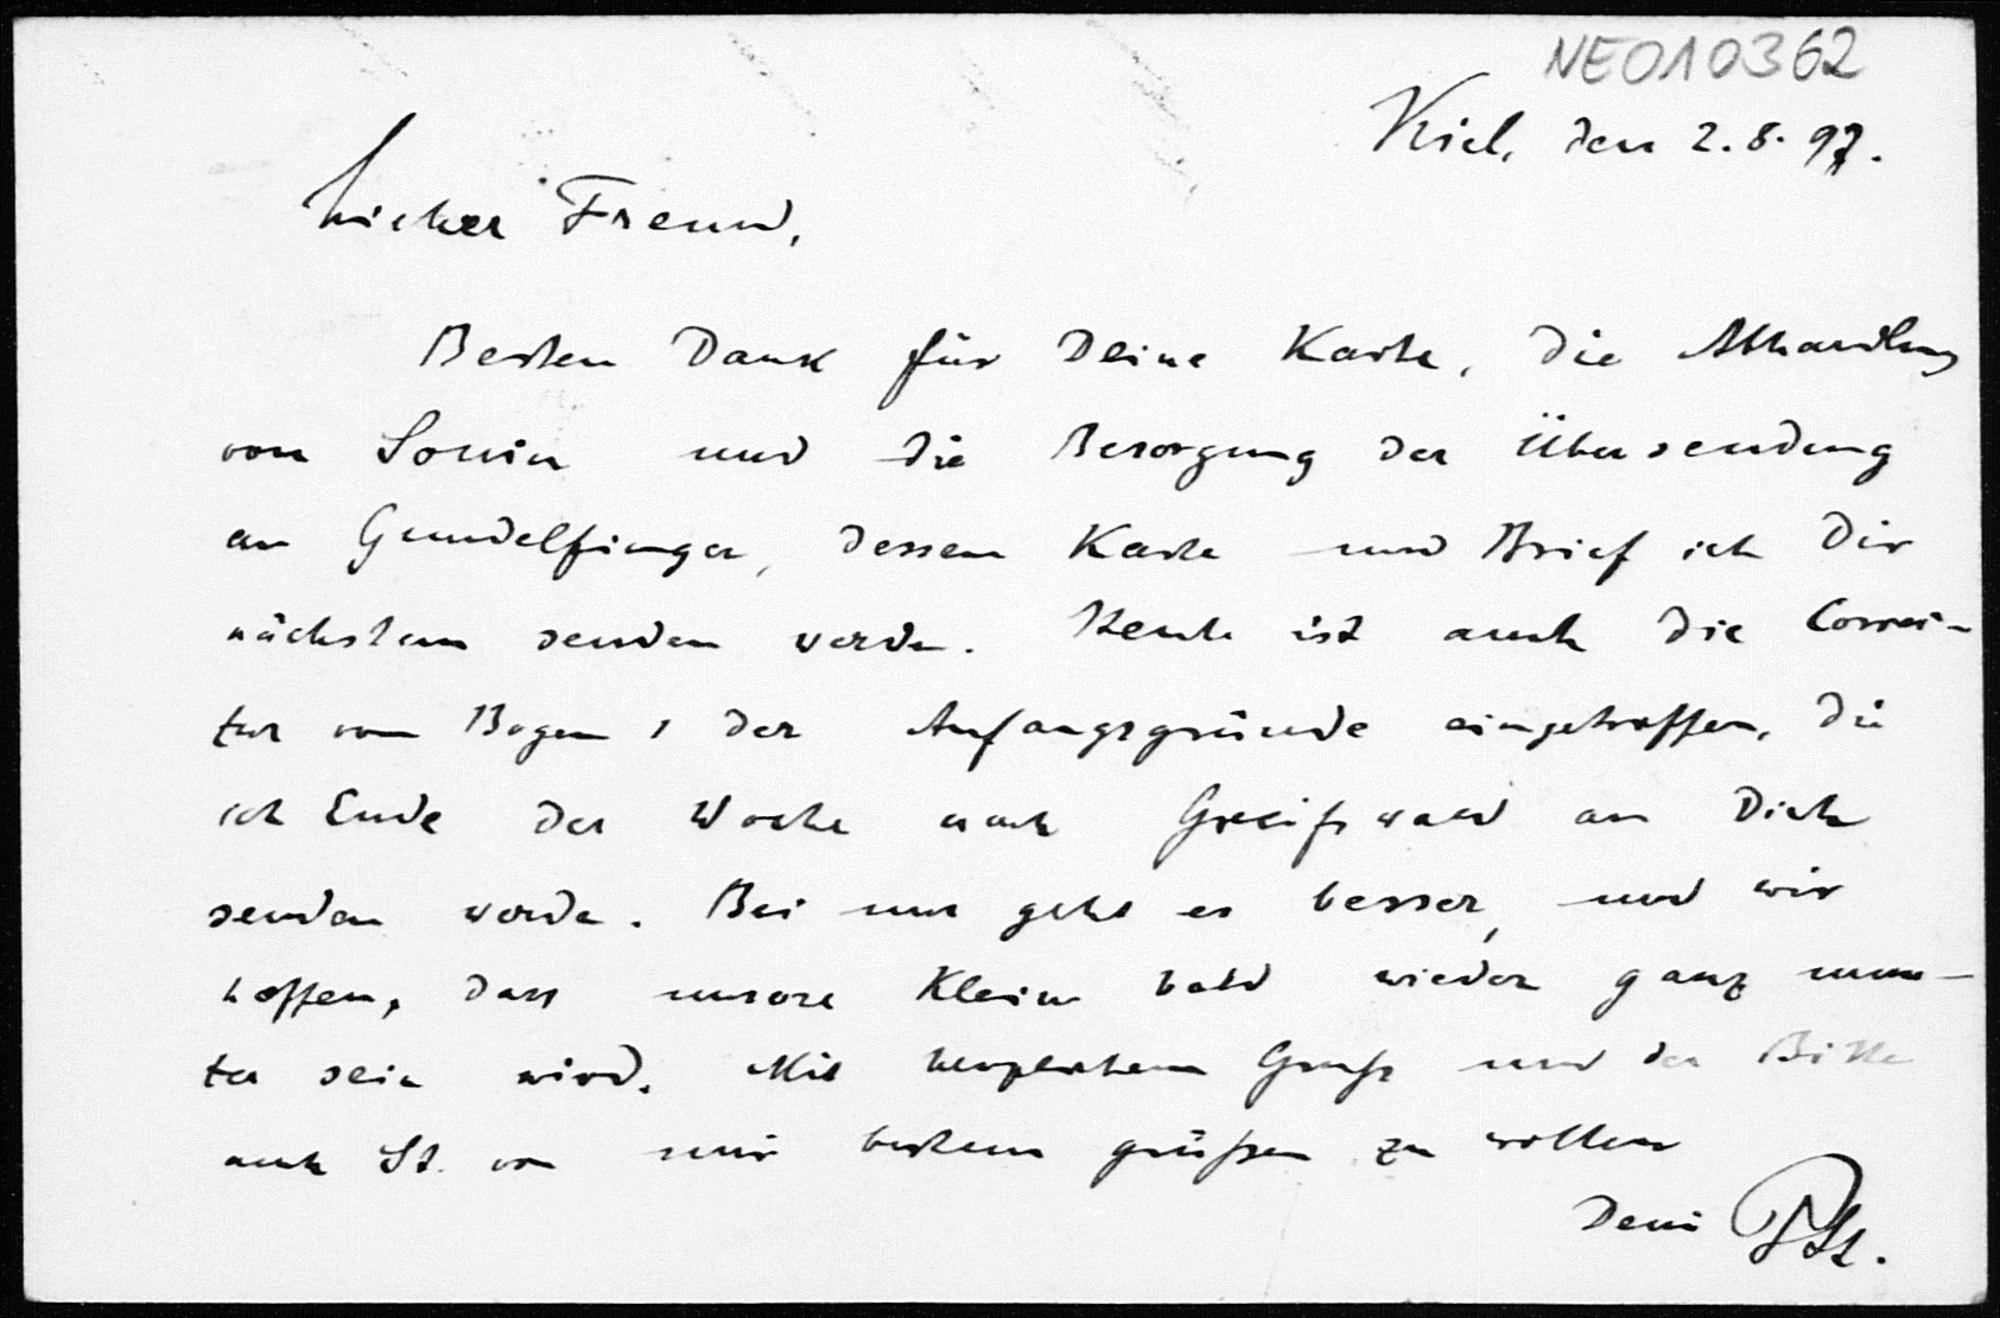 NE010362
Kiel, den 2.8.97.
Lieber Freund,
Besten Dank für Deine Karte, die Abhandlung
von und die Besorgung der Übersendung
an Gundelfinger, dessen Karte und Brief ich Dir
nächstens senden werde. Heute ist auch die Correc-
tur vom Bogen 1 der Anfangsgründe eingetroffen, die
ich Ende der Woche nach Greifswald an Dich
senden werde. Bei uns geht es besser, und wir
hoffen, dass unsere Kleine bald wieder ganz mun-
ter sein wird. Mit herzlichem Gruß und der Bitte
auch St. von mir bestens grüßen zu wollen
Dein PSt.